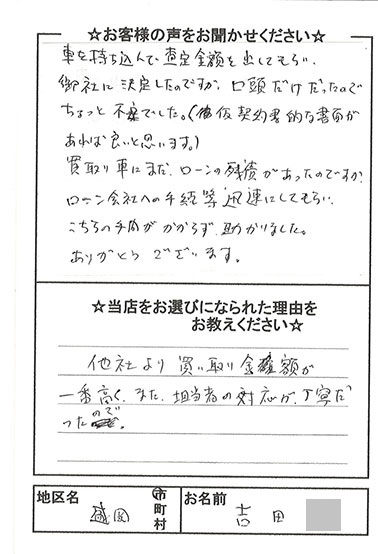 ☆お客様の声をお聞かせください☆
車を持ち込んで、査定金額を出してもらい、
御社に決定したのですが、口頭だけだったので
ちょっと不安でした。(仮契約書的な書面が
あれば良いと思います。)
買取り車にまだ、ローンの残債があったのですが、
ローン会社への手続等迅速にしてもらい、
こちらの手間がかからず、助かりました。
ありがとうございます。
☆当店をお選びになられた理由を
お教えください☆
他社より買い取り金額が
一番高く、また、担当者の対応が、丁寧だ
ったので。
地区名
盛岡
市
町
村
お名前
吉田